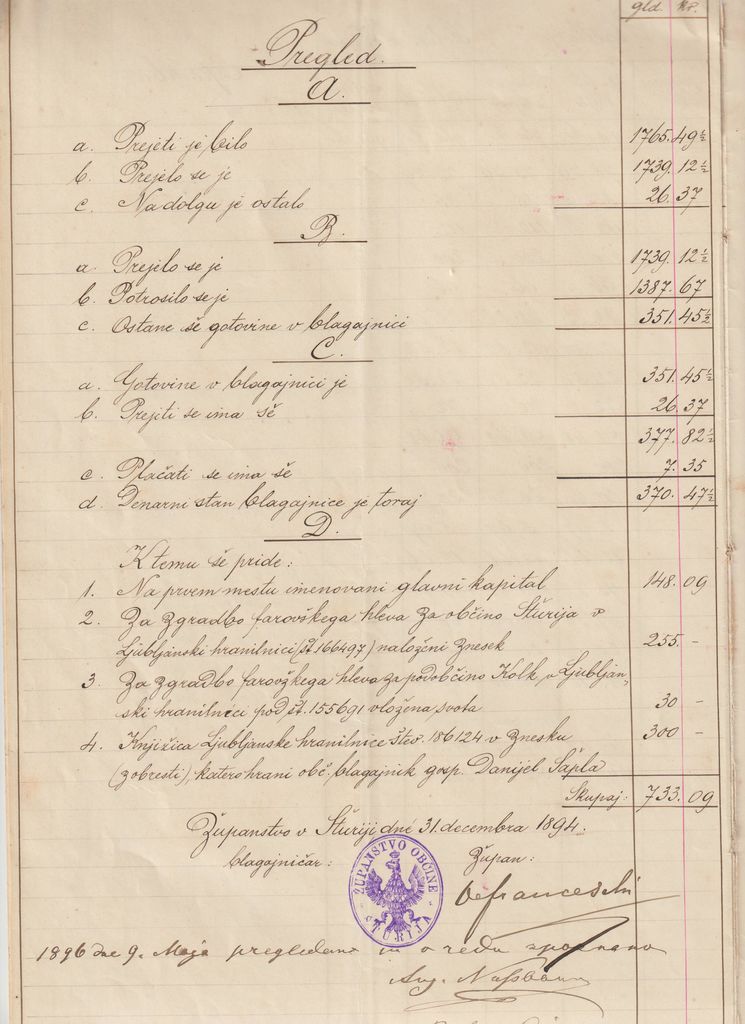 gld. kr.
Pregled.
A.
a. Prejeti je bilo 1765. 49 1/2
b. Prejelo se je 1739. 12 1/2
c. Na dolgu je ostalo 26. 37
B.
a. Prejelo se je 1739. 12 1/2
b. Potrosilo se je 1387. 67
c. Ostane še gotovine v blagajnici 351. 45 1/2
C.
a. Gotovine v blagajnici je 351. 45 1/2
b. Prejiti se ima še 26. 37
377. 82 1/2
c. Plačati se ima še 7. 35
d. Denarni stan blagajnice je toraj 370. 47 1/2
D.
K temu še pride:
1. Na prvem mestu imenovani glavni kapital 148. 09
2. Za zgradbo farovškega hleva za občino Šturija v
Ljubljanski hranilnici (št. 166497) naloženi znesek 255. -
3. Za zgradbo farovžkega hleva za podobčino Kolk, v Ljubljan-
ski hranilnici pod št. 155691 vložena svota 30 -
4. Knjižica Ljubljanske hranilnice štev. 186124 v znesku 300 -
(z obresti), katero hrani obč. blagajnik gosp. Danijel Šapla
Skupaj: 733. 09
Županstvo v Šturiji dné 31. decembra 1894.
blagajničar: Župan:
ŽUPANSTVO OBČINE
ŠTURIJA
Defranceschi
1896 dne 9. Maja pregledano in v redu spoznano
Aug.